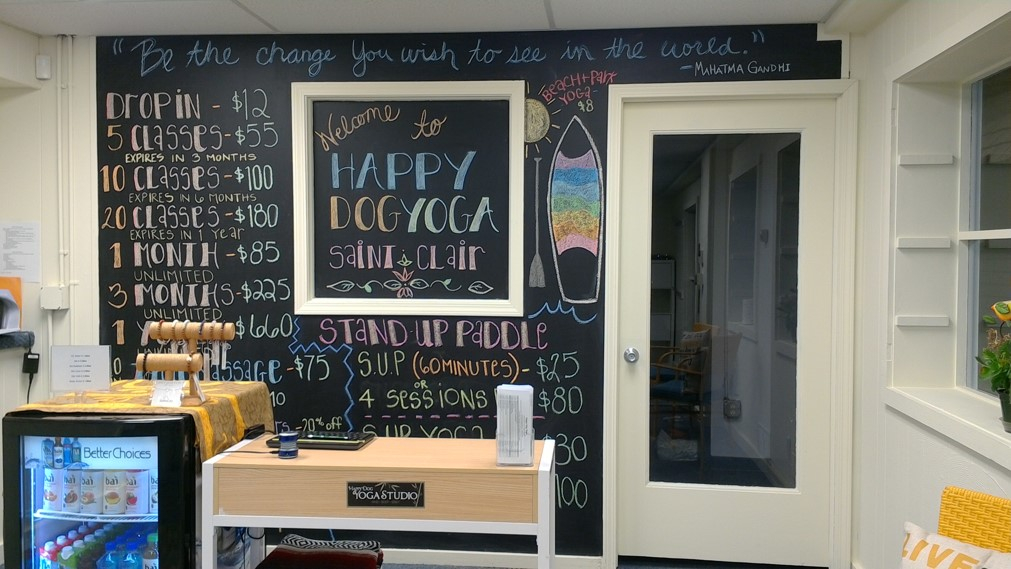 "Be the change you wish to see in the world."
-MAHATMA GANDHI
DROP IN - $12
5 CLASSES - $55
EXPIRES IN 3 MONTHS
10 CLASSES - $100
EXPIRES IN 6 MONTHS
20 CLASSES - $180
EXPIRES IN 1 Year
1 MONTH - $85
UNLIMITED
3 MONTHS - $225
UNLIMITED
1 $660
- $75
-20% off
Welcome to
HAPPY
DOG YOGA
saint clair
BEACH + PARK
YOGA
$8
STAND-UP PADDLE
S.U.P (60 MINUTES) - $25
OR
4 SESSIONS $80
S.U.P YOGA $30
Better Choices
bai bai bai bai
HAPPY DOG
YOGA STUDIO
LIVE